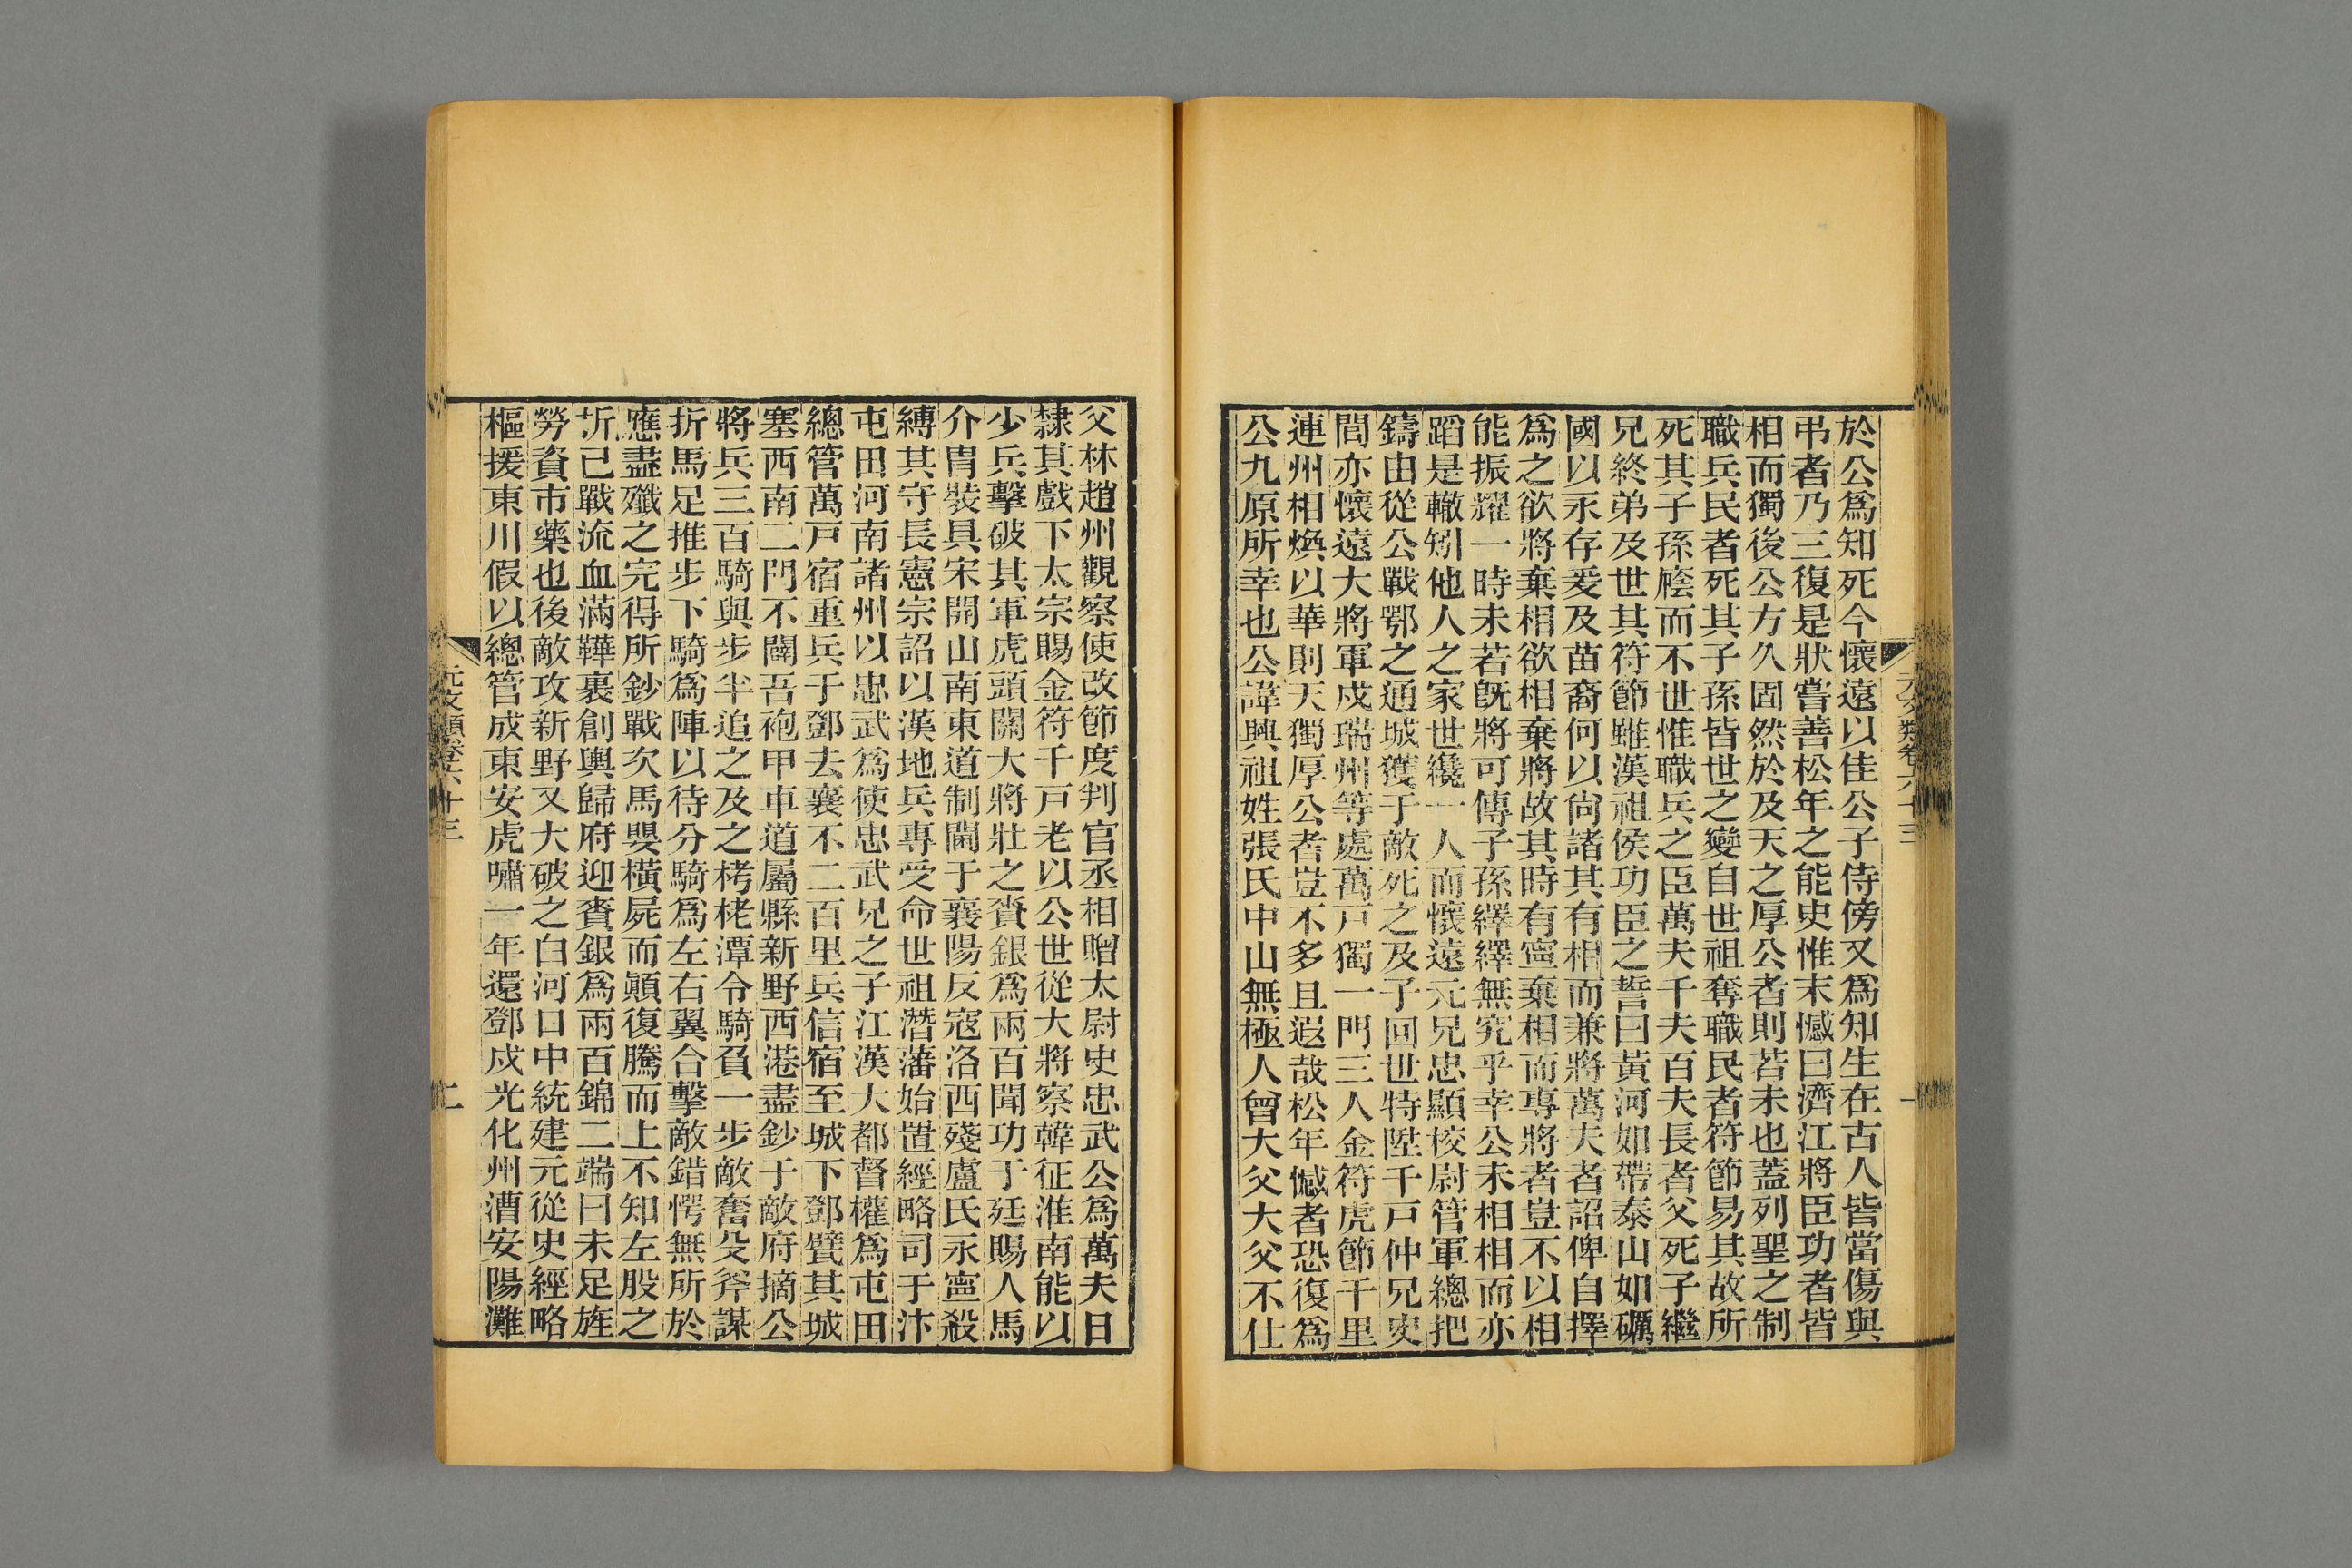 於公爲知死今懷遠以佳公子侍傍又爲知生在古人皆當傷與
弔者乃三復是狀嘗善松年之能史惟末憾曰濟江將臣功者皆
相而獨後公方久固然於及天之厚公者則若未也蓋列聖之制
職兵民者死其子孫皆世之變自世祖奪職民者符節易其故所
死其子孫廕而不世惟職兵之臣萬夫千夫百夫長者父死子繼
兄終弟及世其符節雖漢祖侯功臣之誓曰黃河如帶泰山如礪
國以永存爰及苗裔何以尙諸其有相而兼將萬夫者詔俾自擇
爲之欲將棄相欲相棄將故其時有寧棄相而專將者豈不以相
能振耀一時未若旣將可傳子孫繹繹無究乎幸公未相相而亦
蹈是轍矧他人之家世纔一人而懷遠元兄忠顯校尉管軍總把
鑄由從公戰鄂之通城獲于敵死之及子回世特陞千戶仲兄史
間亦懷遠大將軍戍瑞州等處萬戶獨一門三人金符虎節千里
連州相煥以華則天獨厚公者豈不多且遐哉松年憾者恐復爲
公九原所幸也公諱興祖姓張氏中山無極人曾大父大父不仕
元文類卷六十三
父林趙州觀察使改節度判官丞相贈太尉史忠武公爲萬夫日
隸其戲下太宗賜金符千戶老以公世從大將察韓征淮南能以
少兵擊破其軍虎頭關大將壯之賚銀爲兩百聞功于廷賜人馬
介胄裝具宋開山南東道制閫于襄陽反寇洛西殘盧氏永寧殺
縛其守長憲宗詔以漢地兵專受命世祖潛藩始置經略司于汴
屯田河南諸州以忠武爲使忠武兄之子江漢大都督權爲屯田
總管萬戶宿重兵于鄧去襄不二百里兵信宿至城下鄧甓其城
塞西南二門不闢吾袍甲車道屬縣新野西港盡鈔于敵府摘公
將兵三百騎與步半追之及之栲栳潭令騎負一步敵奮殳斧謀
折馬足推步下騎爲陣以待分騎爲左右翼合擊敵錯愕無所於
應盡殲之完得所鈔戰次馬嬰橫屍而顚復騰而上不知左股之
折己戰流血滿鞾裹創輿歸府迎賚銀爲兩百錦二端曰未足旌
勞資市藥也後敵攻新野又大破之白河口中統建元從史經略
樞援東川假以總管成東安虎嘯一年還鄧戍光化州漕安陽灘
元文類卷六十三
二